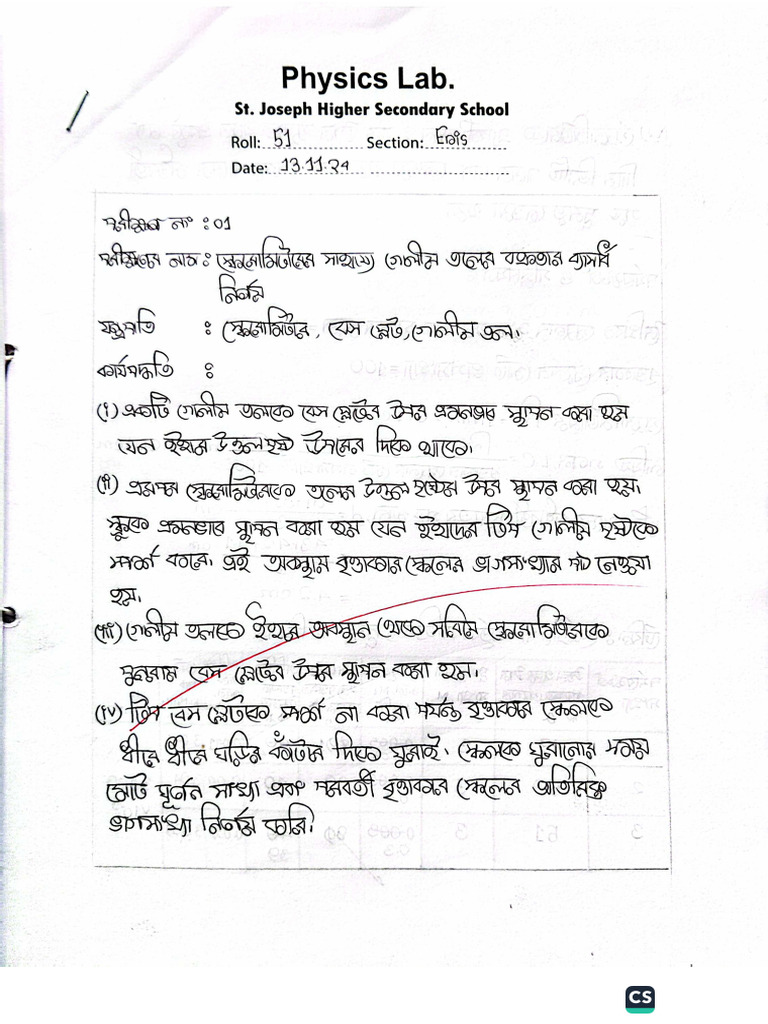 Physics Lab.
St. Joseph Higher Secondary School
Roll: 51 Section: Eris
Date: 13.11.24
পরীক্ষণ নং : 01
পরীক্ষণের নাম : স্ফেরোমিটারের সাহায্যে গোলীয় তলের বক্রতার ব্যাসার্ধ
নির্ণয়
যন্ত্রপাতি : স্ফেরোমিটার, বেস প্লেট, গোলীয় তল।
কার্যপদ্ধতি :
(i) একটি গোলীয় তলকে বেস প্লেটের উপর এমনভাবে স্থাপন করা হয়
যেন ইহার উত্তল পৃষ্ঠ উপরের দিকে থাকে।
(ii) এরপর স্ফেরোমিটারকে তলের উত্তল পৃষ্ঠের উপর স্থাপন করা হয়।
স্ক্রুকে এমনভাবে স্থাপন করা হয় যেন ইহাদের টিপ গোলীয় পৃষ্ঠকে
স্পর্শ করে। এই অবস্থায় বৃত্তাকার স্কেলের ভাগসংখ্যার পাঠ নেওয়া
হয়।
(iii) গোলীয় তলকে ইহার অবস্থান থেকে সরিয়ে স্ফেরোমিটারকে
পুনরায় বেস প্লেটের উপর স্থাপন করা হয়।
(iv) টিপ বেস প্লেটকে স্পর্শ না করা পর্যন্ত বৃত্তাকার স্কেলকে
ধীরে ধীরে ঘড়ির কাঁটার দিকে ঘুরাই। স্কেলকে ঘুরানোর সময়
মোট ঘূর্ণন সংখ্যা এবং পরবর্তী বৃত্তাকার স্কেলের অতিরিক্ত
ভাগসংখ্যা নির্ণয় করি।
CS